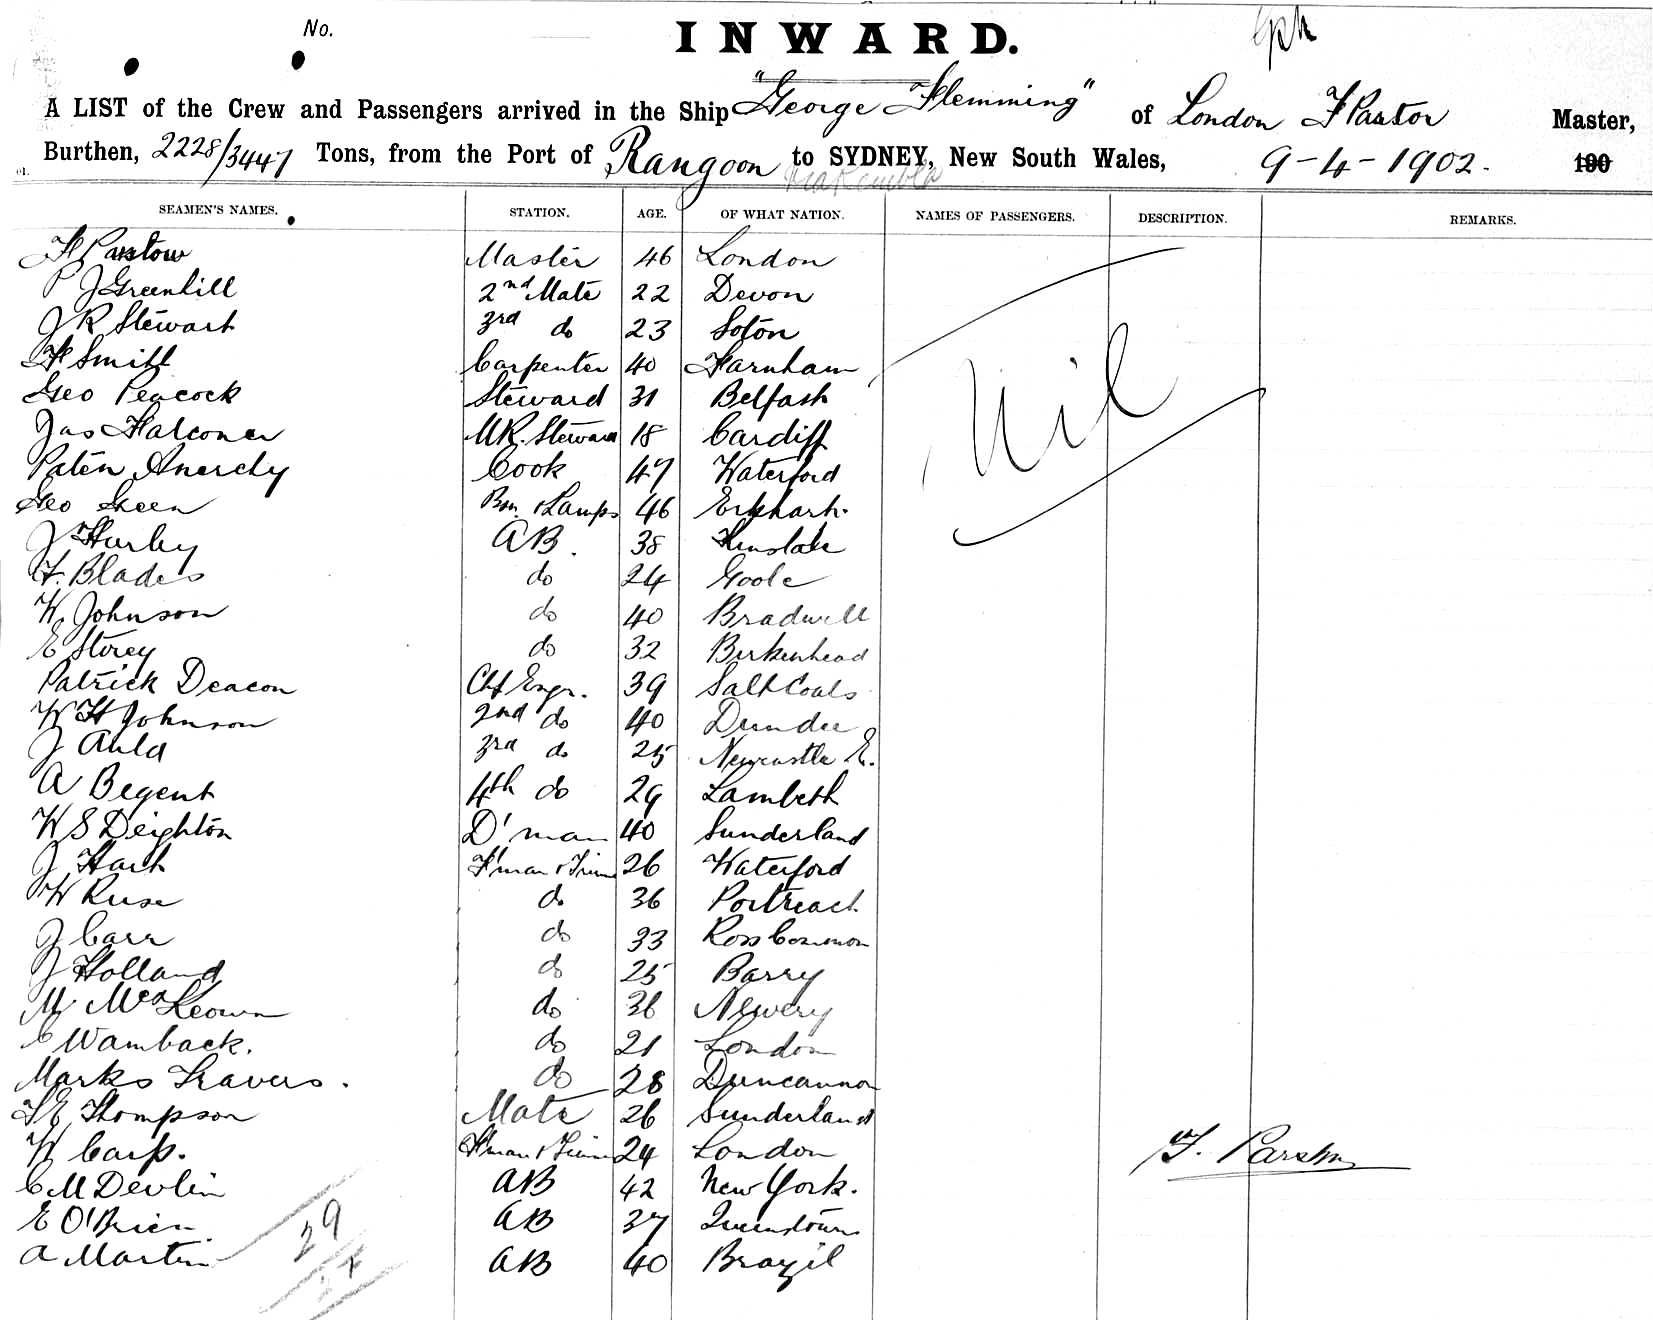 No.
INWARD.
A LIST of the Crew and Passengers arrived in the Ship "George Flemming" of London F Parstow Master,
Burthen, 2228/3447 Tons, from the Port of Rangoon to SYDNEY, New South Wales, 9-4-1902. 190
via Kembla
SEAMEN'S NAMES. STATION. AGE. OF WHAT NATION. NAMES OF PASSENGERS. DESCRIPTION. REMARKS.
F Parstow Master 46 London
P J Greenhill 2nd Mate 22 Devon
J R Stewart 3rd do 23 Soton
F Smith Carpenter 40 Farnham
Geo Peacock Steward 31 Belfast
Jas Falconer MR. Steward 18 Cardiff
Nil
Paten Cook 47 Waterford
Geo Green Bsn & Lamps 46
J Hurley AB. 38 Kinsale
F. Blades do 24 Goole
W. Johnson do 40 Bradwell
E Storey do 32 Birkenhead
Patrick Deacon Chf Engr. 39 SaltCoats
W H Johnson 2nd do 40 Dundee
J Auld 3rd do 25 Newcastle E.
A Begent 4th do 29 Lambeth
W S Deighton D'man 40 Sunderland
J Hart F'man & Trim 26 Waterford
W Ruse do 36 Portreach
J Carr do 33 RossCommon
J Holland do 25 Barry
M McKeown do 36 Newery
C Wamback. do 21 London
Marks Travers. do 28 Duncannon
T E Thompson Mate 26 Sunderland
W Carp. F'man & Trim 24 London
F. Parstow
C M Devlin AB 42 New York.
E O'Brien AB 37 Queenstown
A Martin AB 40 Brazil
29